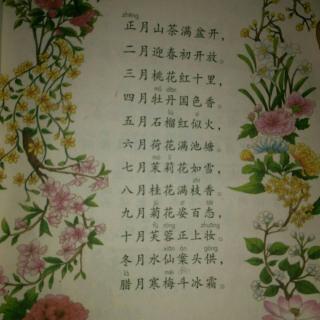 zhēng
正月山茶满盆开，
二月迎春初开放。
三月桃花红十里，
mǔ dān
四月牡丹国色香。
liú
五月石榴红似火，
六月荷花满池塘。
mò lì
七月茉莉花如雪，
zhī
八月桂花满枝香。
jú zī tài
九月菊花姿百态，
fú róng zhuāng
十月芙蓉正上妆。
xiān àn gòng
冬月水仙案头供，
là méi shuāng
腊月寒梅斗冰霜。